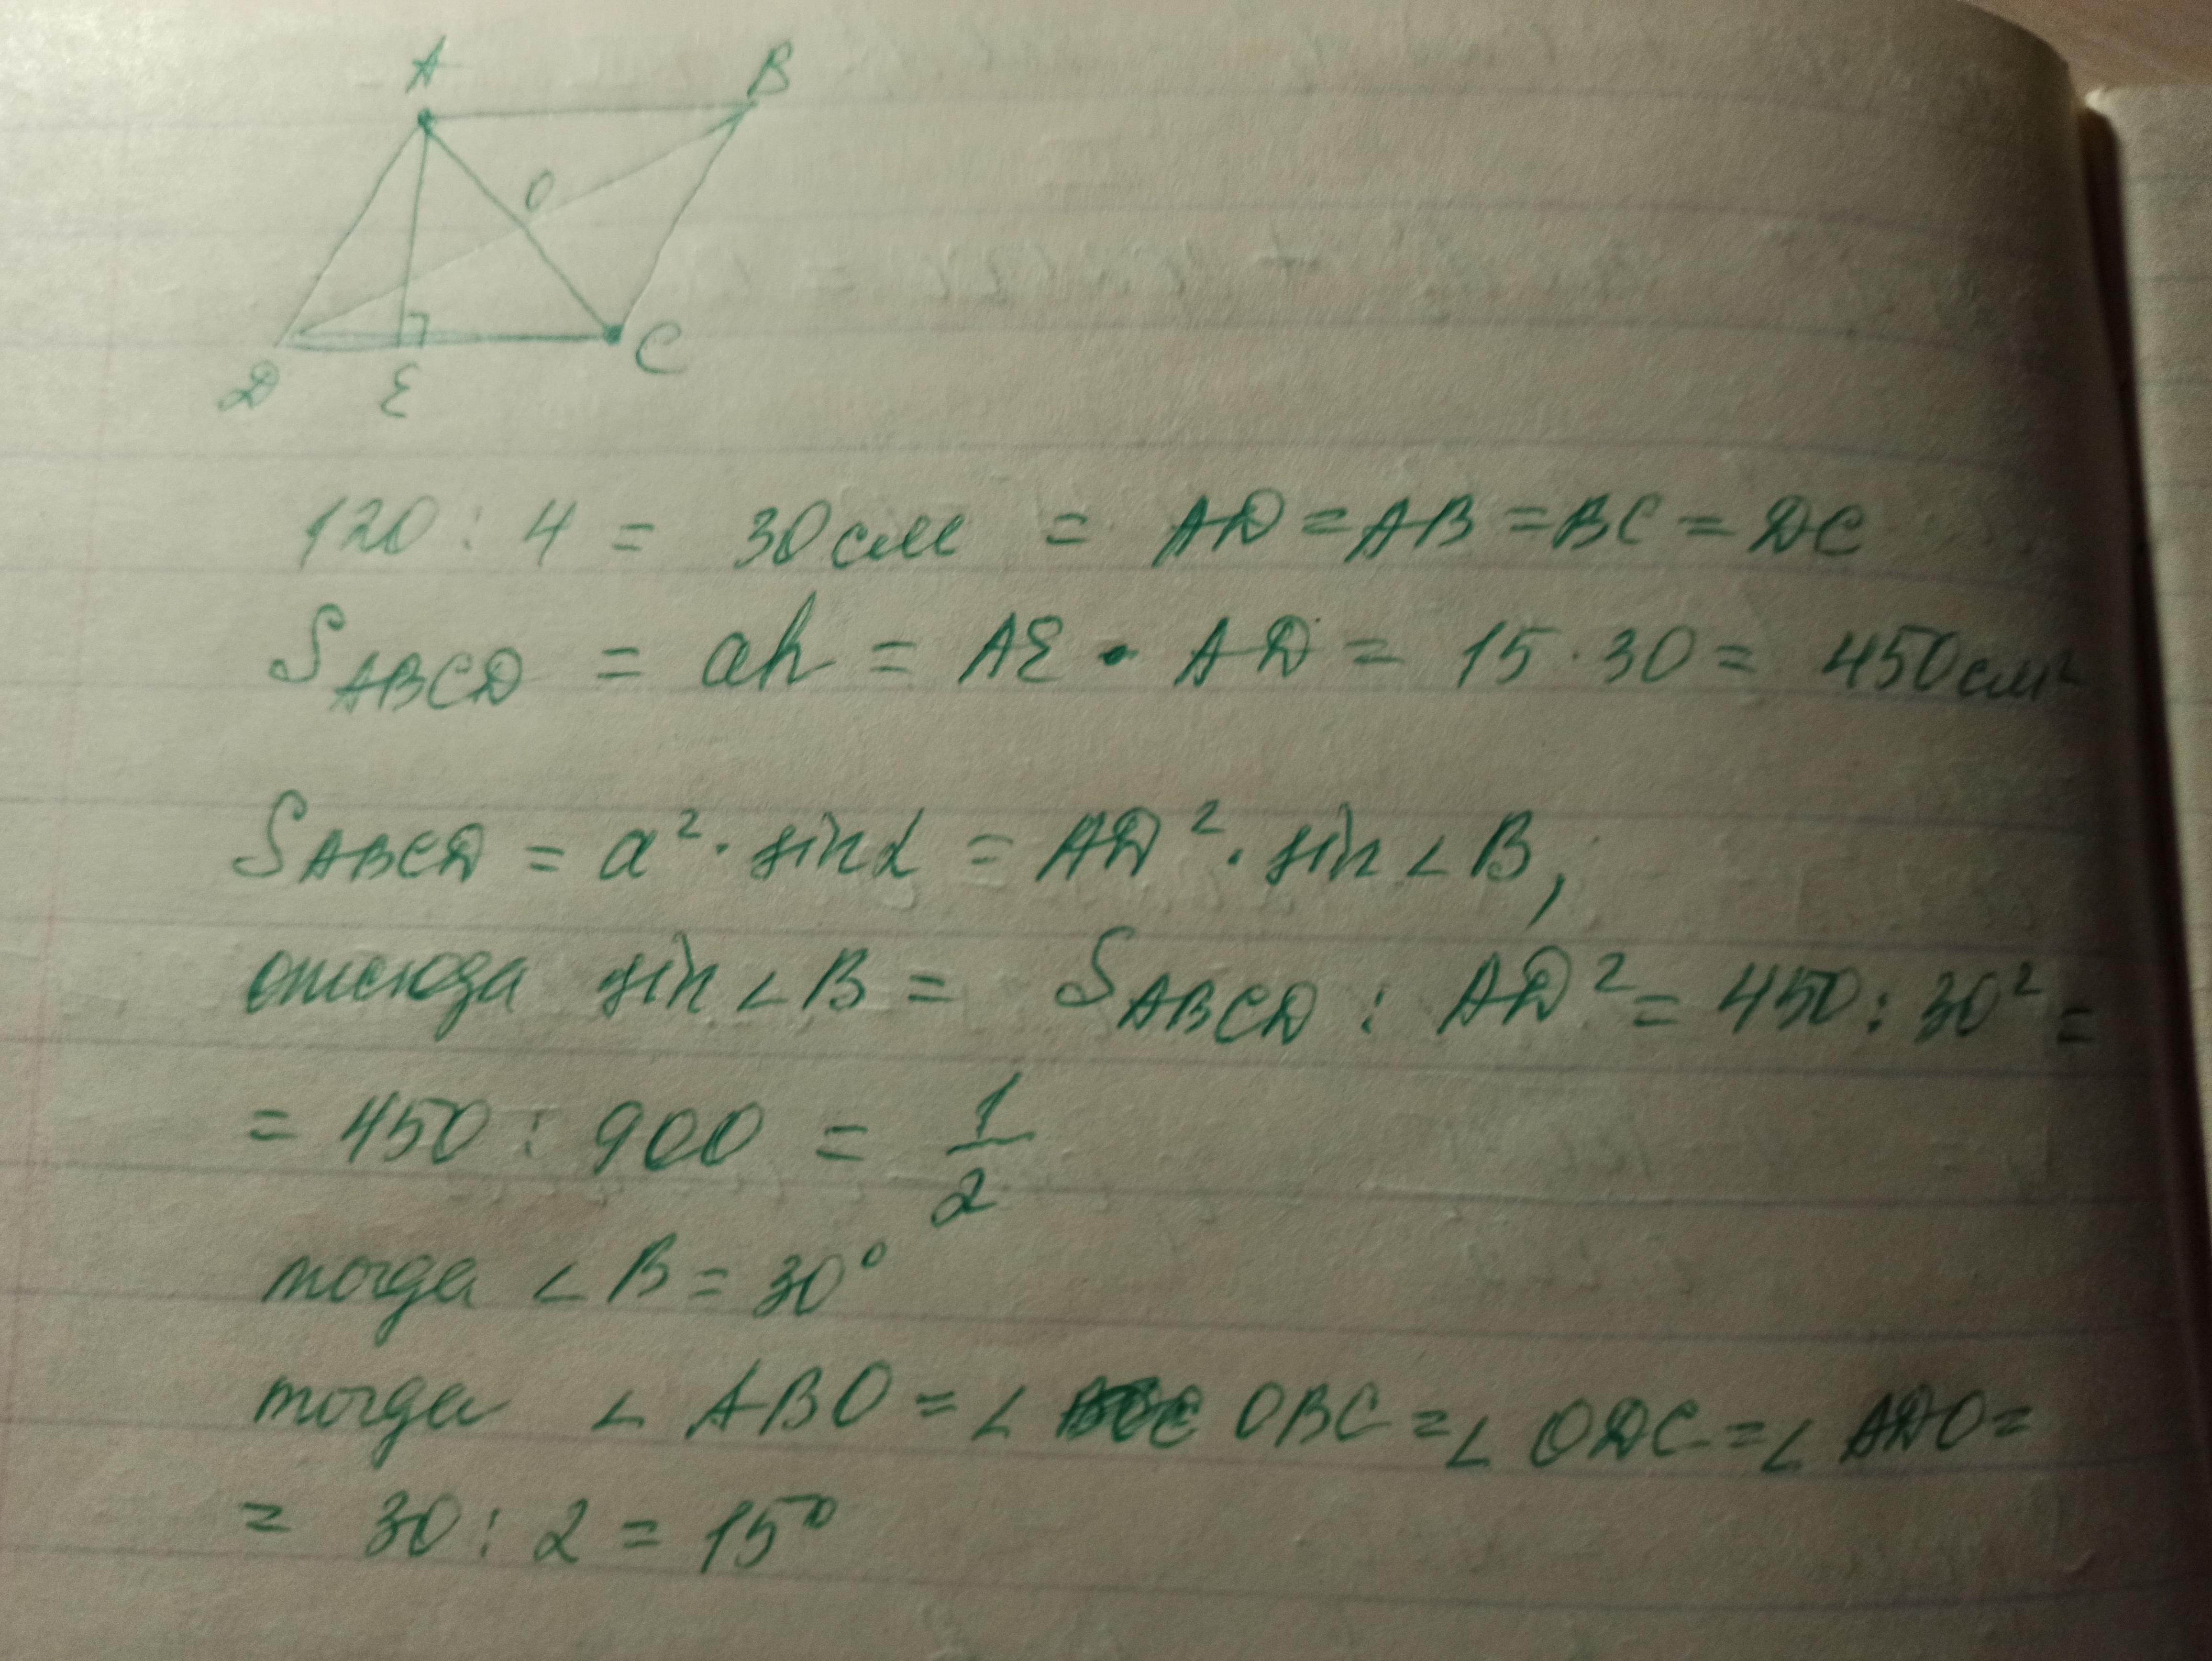 A B
O
D E C
120 : 4 = 30 см = AD = AB = BC = DC
S ABCD = ah = AE · AD = 15 · 30 = 450 см²
S ABCD = a² · sin α = AD² · sin ∠B,
отсюда sin ∠B = S ABCD : AD² = 450 : 30² =
= 450 : 900 = 1/2
тогда ∠B = 30°
тогда ∠ABO = ∠ OBC = ∠ODC = ∠ADO =
= 30 : 2 = 15°